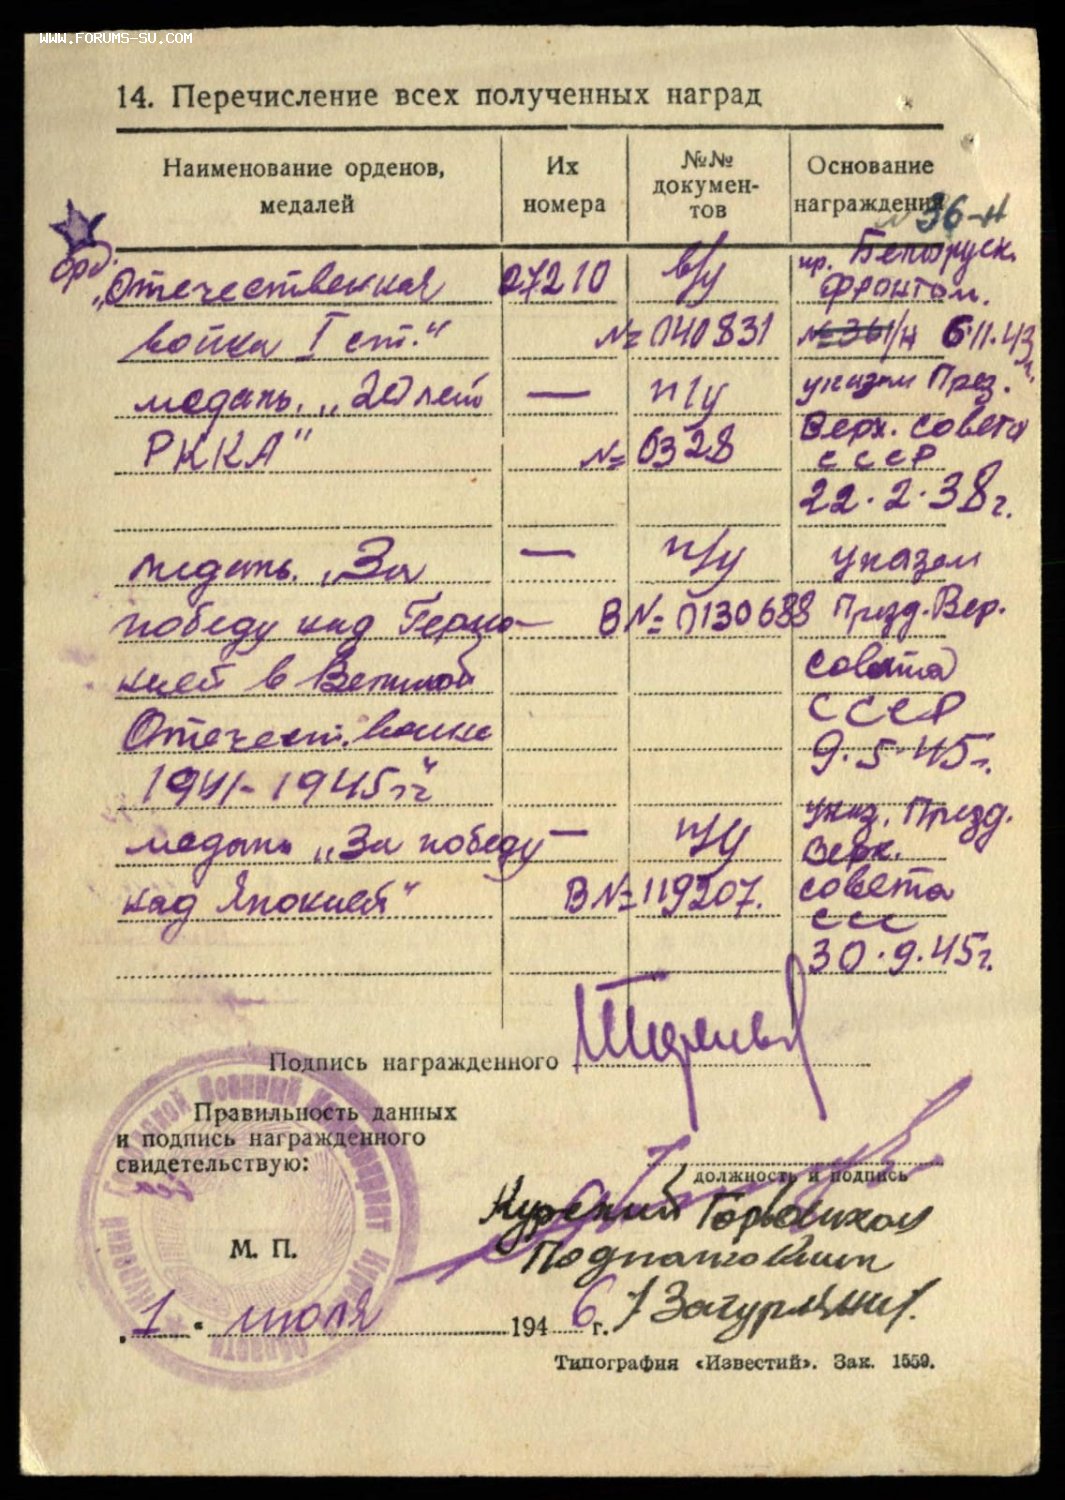 WWW.FORUMS-SU.COM
14. Перечисление всех полученных наград
Наименование орденов, медалей
Их номера
№№ докумен-тов
Основание награждения
36-н
орд. „Отечественная 27210 в/у пр. Белорусск. фронтом.
война I ст.“ № 040831 № 361/н 6.11.43 г.
медаль „20 лет — п/у указом През.
РККА“ № 0328 Верх. совета
СССР
22.2.38 г.
медаль „За — п/у указом
победу над Герма- В № 0130688 Презд. Вер.
нией в Великой совета
Отечест. войне СССР
1941-1945 гг“ 9.5.45 г.
медаль „За победу — п/у указ. Презд. Верх.
над Японией“ В № 119207. совета
ССС
30.9.45 г.
Подпись награжденного
Правильность данных
и подпись награжденного
свидетельствую:
должность и подпись
Курский Горвоенком
Подполковник
М. П.
„1“ июля 1946 г. /Загурский/.
Типография «Известий». Зак. 1559.